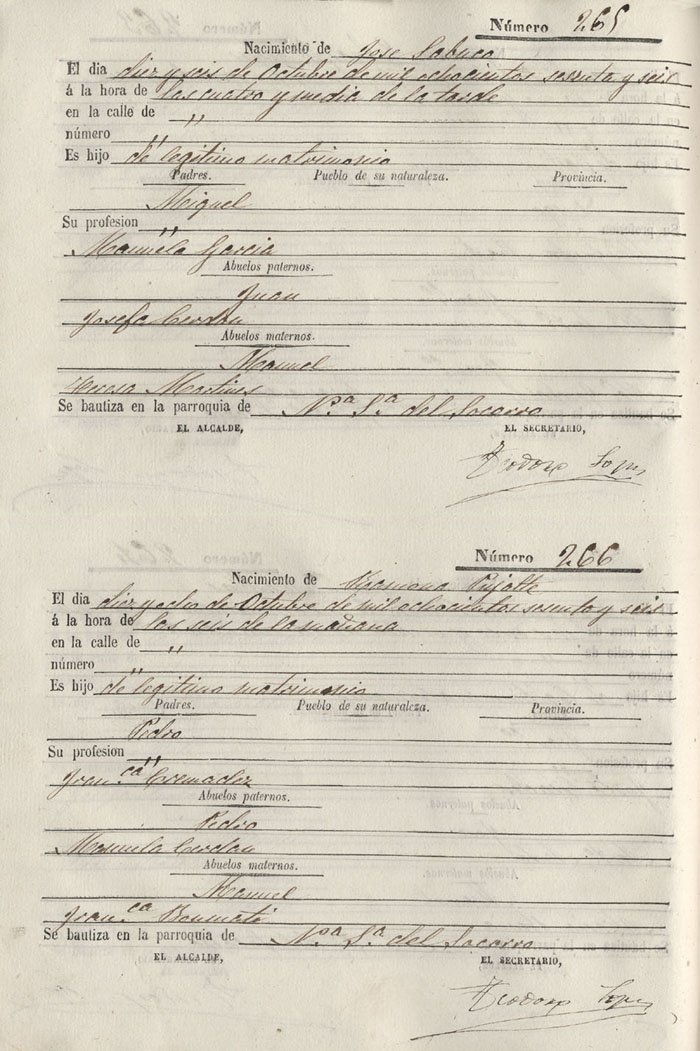 Número 265
Nacimiento de Jose Sabuco
El dia diez y seis de Octubre de mil ochocientos sesenta y seis
á la hora de las cuatro y media de la tarde
en la calle de "
número "
Es hijo de legitimo matrimonio
Padres. Pueblo de su naturaleza. Provincia.
Miguel
Su profesion "
Manuela Garcia
Abuelos paternos.
Juan
Josefa Cerdan
Abuelos maternos.
Manuel
Teresa Martines
Se bautiza en la parroquia de Nª Sª del Socorro
EL ALCALDE, EL SECRETARIO,
Teodoro Lopez
Número 266
Nacimiento de Ramona Pujalte
El dia diez y ocho de Octubre de mil ochocientos sesenta y seis
á la hora de las seis de la mañana
en la calle de "
número "
Es hijo de legitimo matrimonio
Padres. Pueblo de su naturaleza. Provincia.
Pedro
Su profesion "
Franca Cremades
Abuelos paternos.
Pedro
Manuela Cerdan
Abuelos maternos.
Manuel
Franca Boumati
Se bautiza en la parroquia de Nª Sª del Socorro
EL ALCALDE, EL SECRETARIO,
Teodoro Lopez